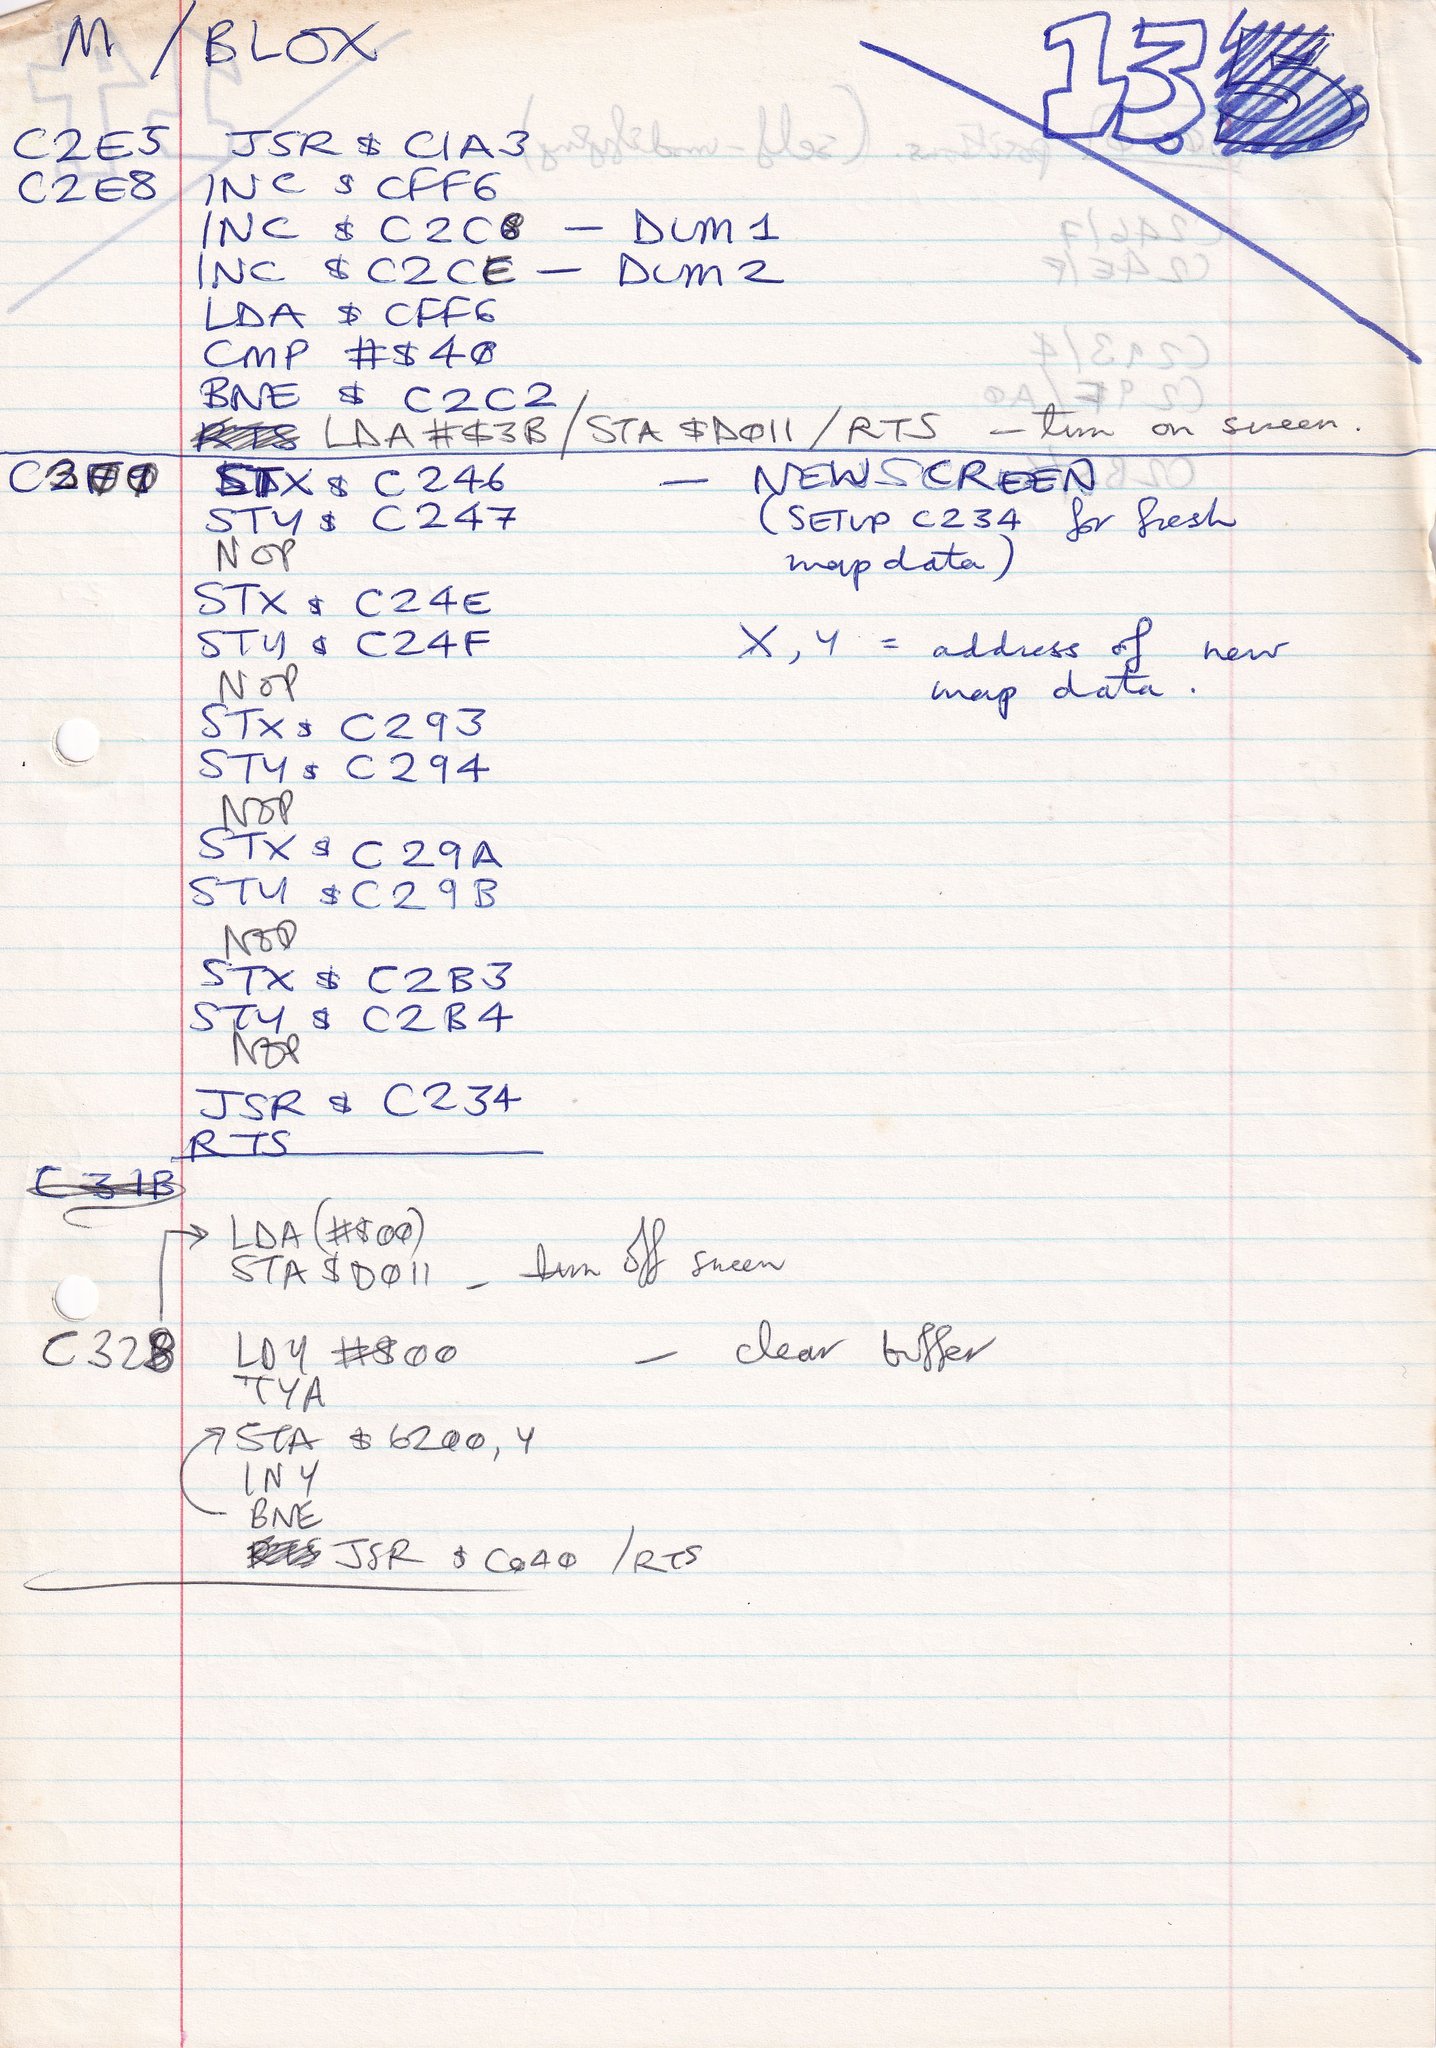 M / BLOX
13.
C2E5 JSR $ C1A3
C2E8 INC $ CFF6
INC $ C2C8 — DUM 1
INC $ C2CE — DUM 2
LDA $ CFF6
CMP #$40
BNE $ C2C2
RTS LDA #$3B / STA $D011 / RTS — turn on screen.
STX $ C246 — NEWSCREEN
STY $ C247 (SETUP C234 for fresh
NOP map data)
STX $ C24E
STY $ C24F X, Y = address of new
NOP map data.
STX $ C293
STY $ C294
NOP
STX $ C29A
STY $ C29B
NOP
STX $ C2B3
STY $ C2B4
NOP
JSR $ C234
RTS
C31B
LDA (#$00)
STA $D011 — turn off screen
C328 LDY #$00 — clear buffer
TYA
STA $ 6200, Y
INY
BNE
RTS JSR $ C040 / RTS